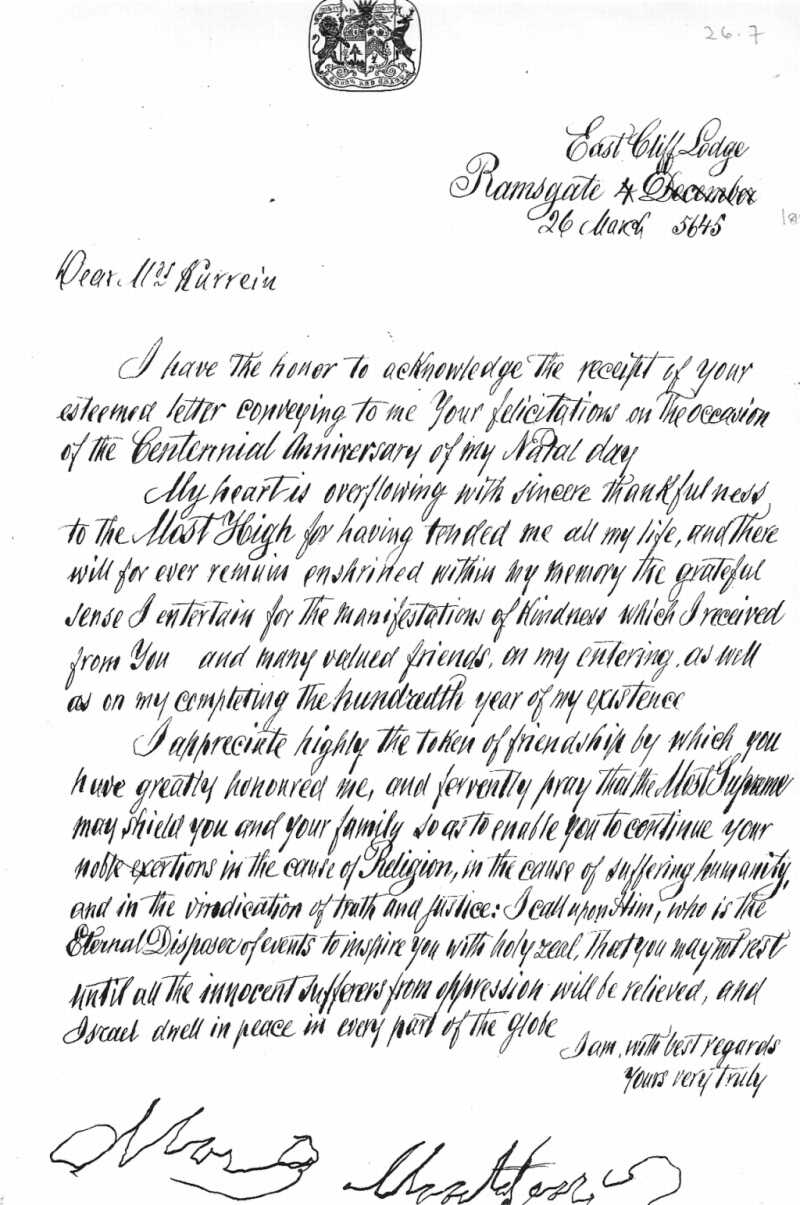 26.7
East Cliff Lodge
Ramsgate 4 December
26 March 5645
Dear Mrs Kurrein
I have the honor to acknowledge the receipt of your
esteemed letter conveying to me Your felicitations on the occasion
of the Centennial Anniversary of my Natal day
My heart is overflowing with sincere thankfulness
to the Most High for having tended me all my life, and there
will for ever remain enshrined within my memory the grateful
sense I entertain for the manifestations of kindness which I received
from You and many valued friends, on my entering, as well
as on my completing the hundredth year of my existence
I appreciate highly the token of friendship by which you
have greatly honoured me, and fervently pray that the Most Supreme
may shield you and your family so as to enable you to continue your
noble exertions in the cause of Religion, in the cause of suffering humanity,
and in the vindication of truth and justice: I call upon Him, who is the
Eternal Disposer of events to inspire you with holy zeal, that you may not rest
until all the innocent sufferers from oppression will be relieved, and
Israel dwell in peace in every part of the Globe
I am, with best regards
Yours very truly